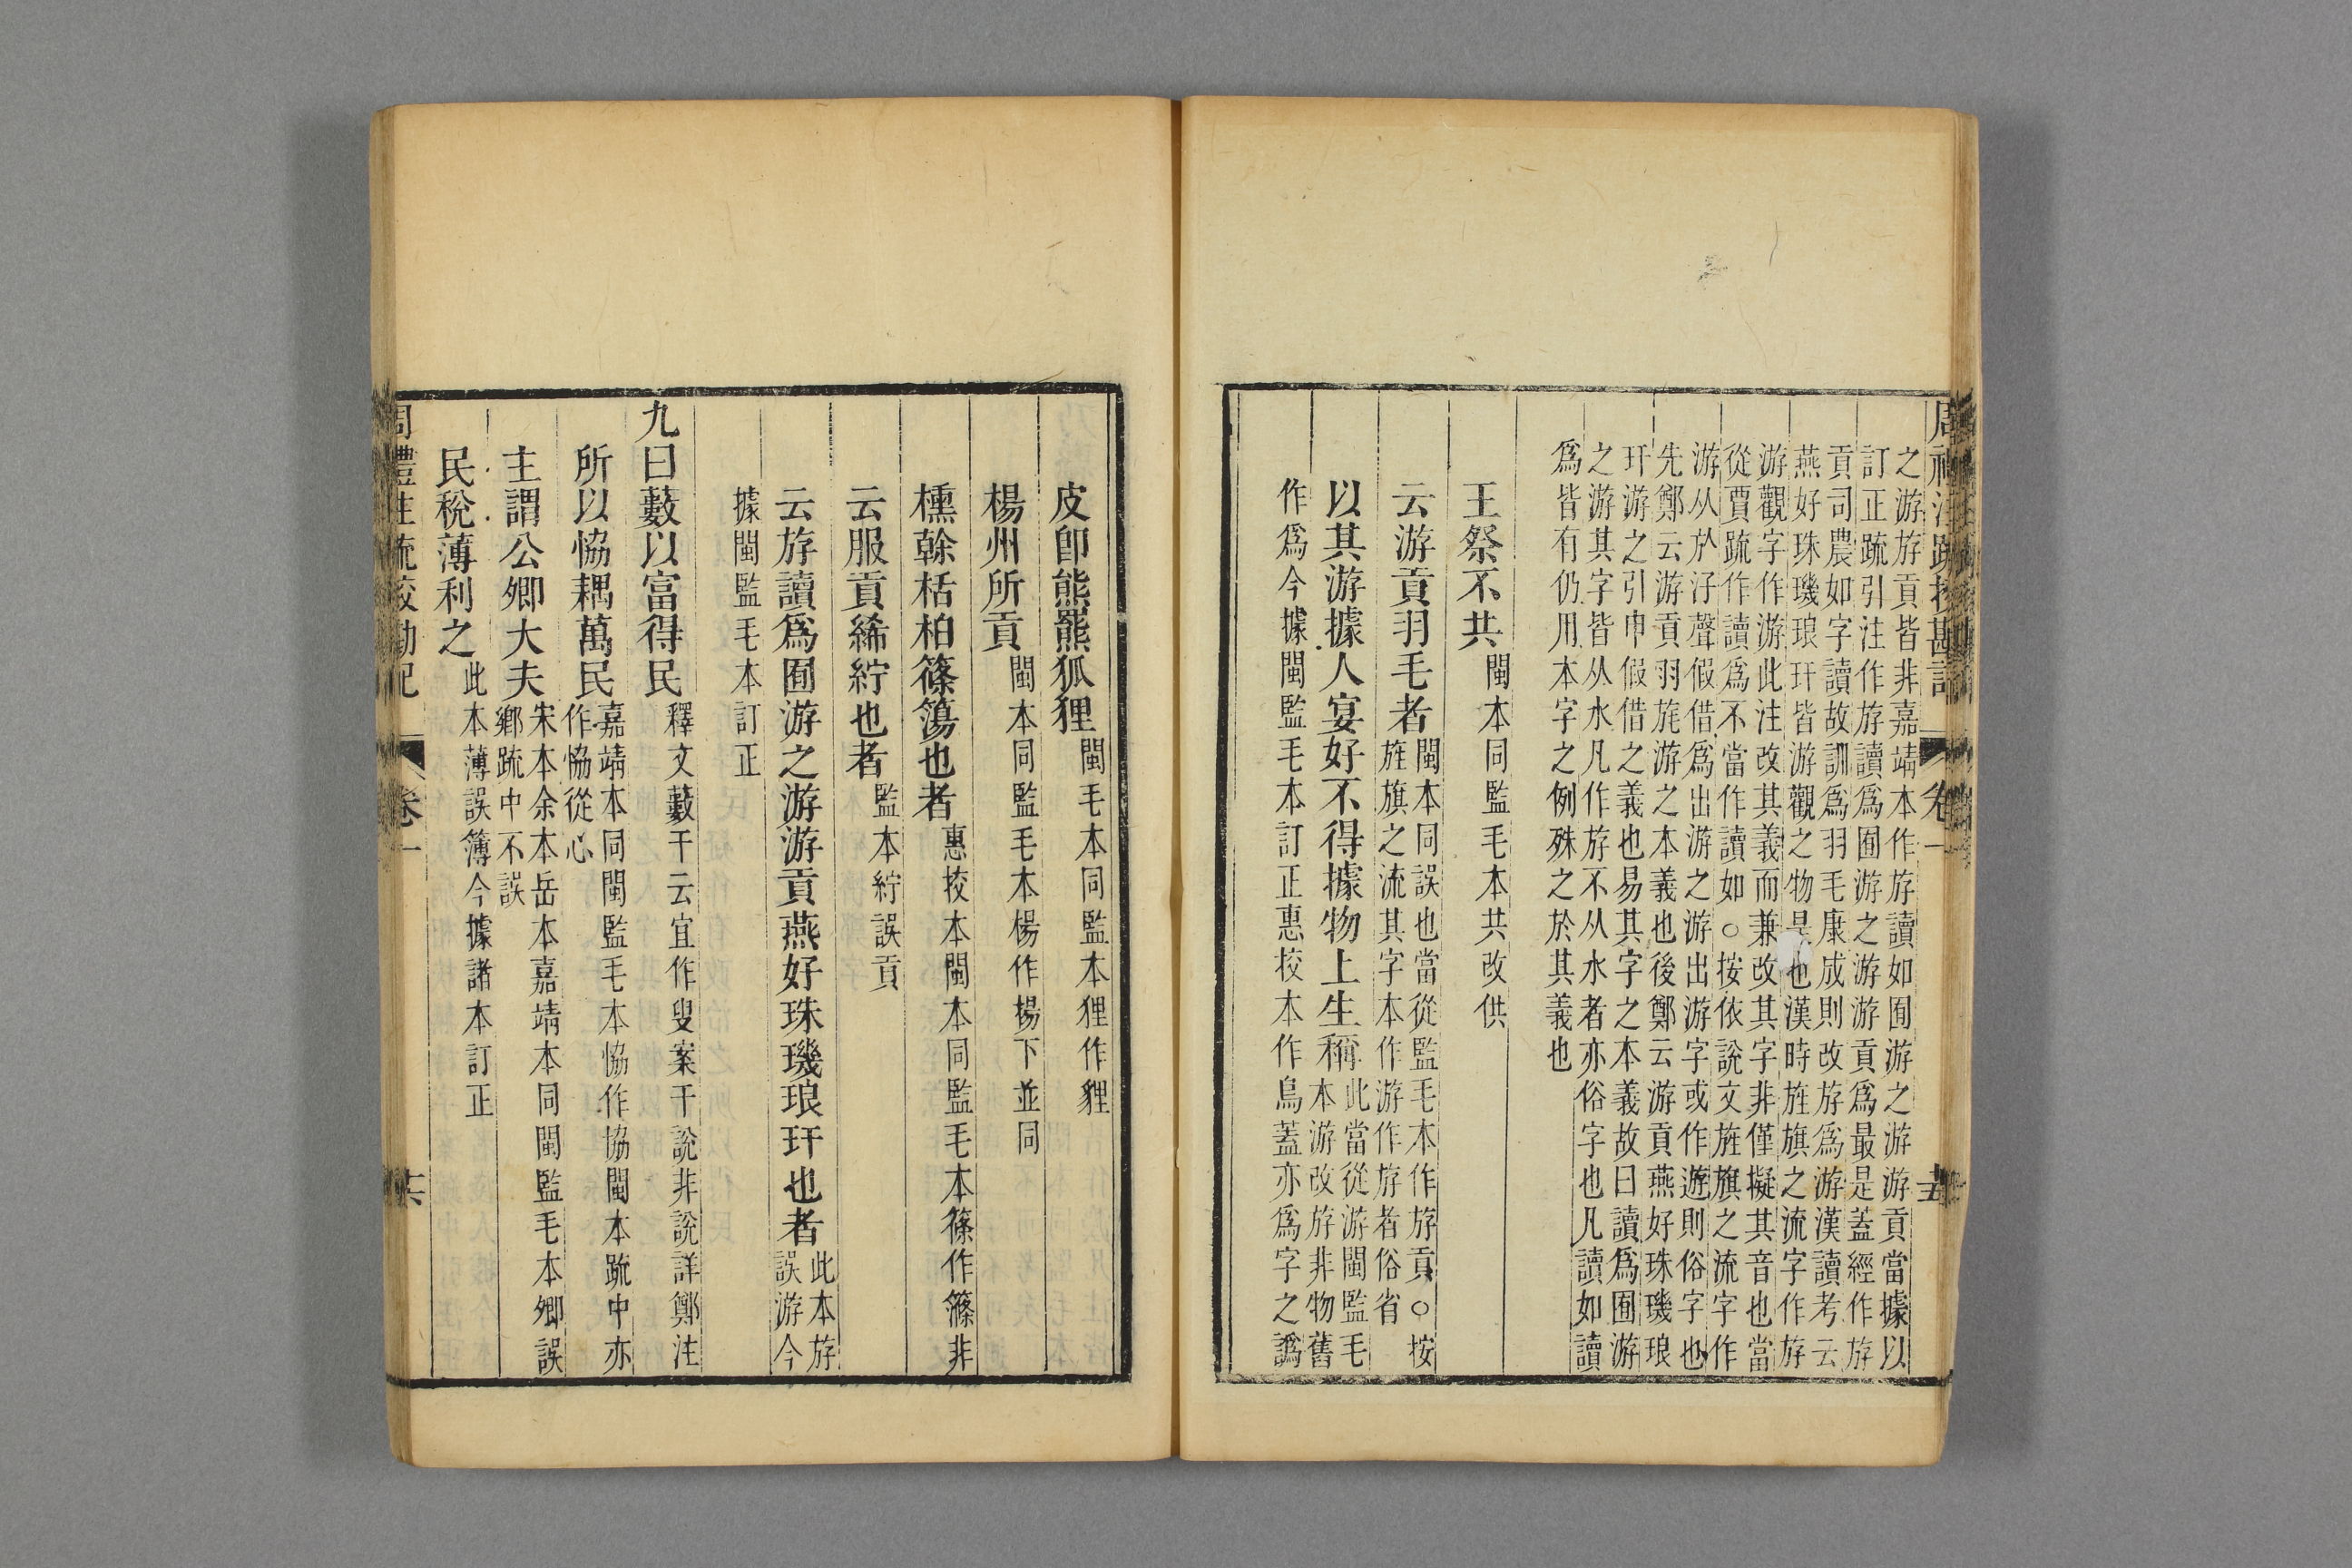 周禮注疏挍勘記 卷一 五
之游斿貢皆非嘉靖本作斿讀如囿游之游游貢當據以
訂正䟽引注作斿讀爲囿游之游游貢爲最是蓋經作斿
貢司農如字讀故訓爲羽毛康成則改斿爲游漢讀考云
燕好珠璣琅玕皆游觀之物是也漢時旌旗之流字作斿
游觀字作游此注改其義而兼改其字非僅擬其音也當
從賈䟽作讀爲不當作讀如○按依說文旌旗之流字作
游从㫃汓聲假借爲出游之游出游字或作遊則俗字也
先鄭云游貢羽旄游之本義也後鄭云游貢燕好珠璣琅
玕游之引申假借之義也易其字之本義故曰讀爲囿游
之游其字皆从水凡作斿不从水者亦俗字也凡讀如讀
爲皆有仍用本字之例殊之於其義也
王祭不共 閩本同監毛本共改供
云游貢羽毛者 閩本同誤也當從監毛本作斿貢○按
旌旗之流其字本作游作斿者俗省
以其游據人宴好不得據物上生稱 此當從游閩監毛
本游改斿非物舊
作爲今據閩監毛本訂正惠挍本作鳥蓋亦爲字之譌
皮卽熊羆狐狸 閩毛本同監本狸作貍
楊州所貢 閩本同監毛本楊作揚下並同
櫄榦栝柏篠簜也者 惠挍本閩本同監毛本篠作篠非
云服貢絺紵也者 監本紵誤貢
云斿讀爲囿游之游游貢燕好珠璣琅玕也者 此本斿
誤游今
據閩監毛本訂正
九曰藪以富得民 釋文藪干云宜作叟案干說非說詳鄭注
所以恊耦萬民 嘉靖本同閩監毛本恊作協閩本䟽中亦
作恊從心
主謂公卿大夫 宋本余本岳本嘉靖本同閩監毛本卿誤
鄉䟽中不誤
民稅薄利之 此本薄誤簿今據諸本訂正
周禮注疏挍勘記 卷一 六